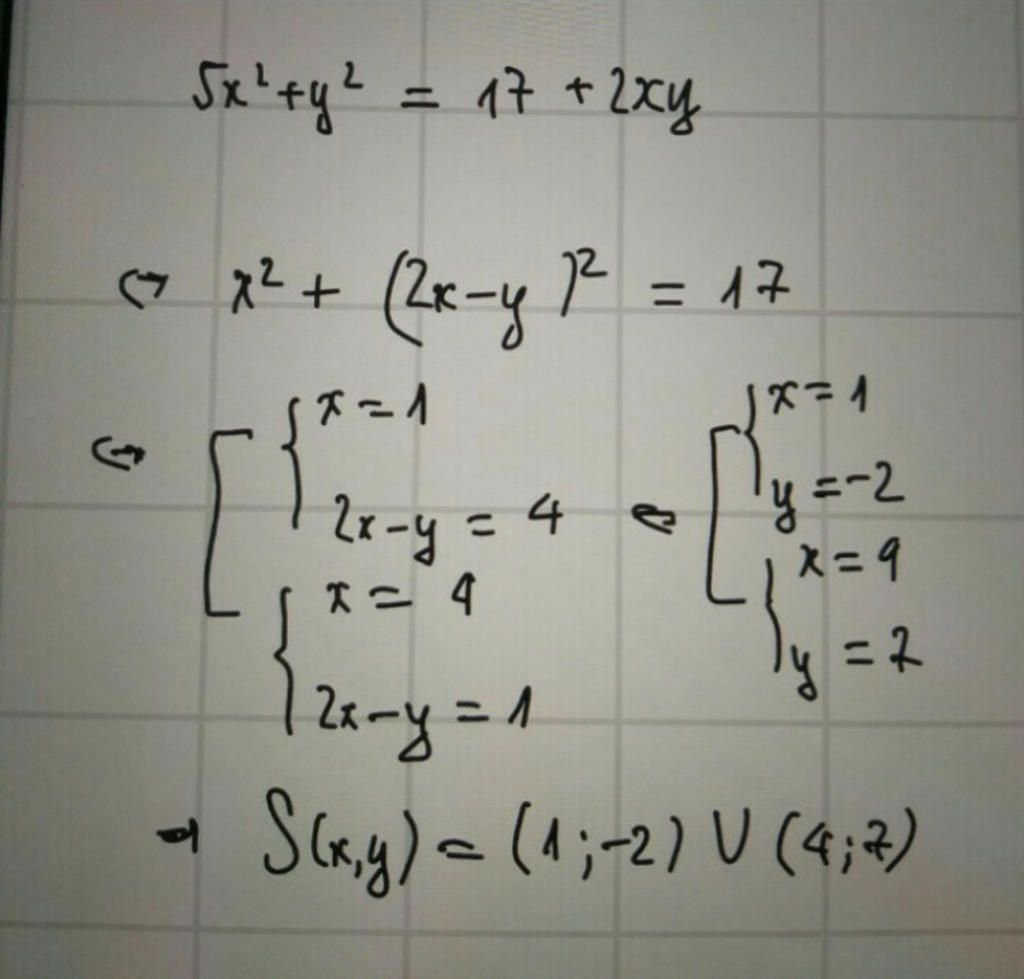 5x²+y² = 17 + 2xy
↔ x² + (2x-y)² = 17
↔ [ { x = 1
2x-y = 4
{ x = 4
2x-y = 1
↔ [ { x = 1
y = -2
{ x = 4
y = 7
→ S(x,y) = (1;-2) U (4;7)